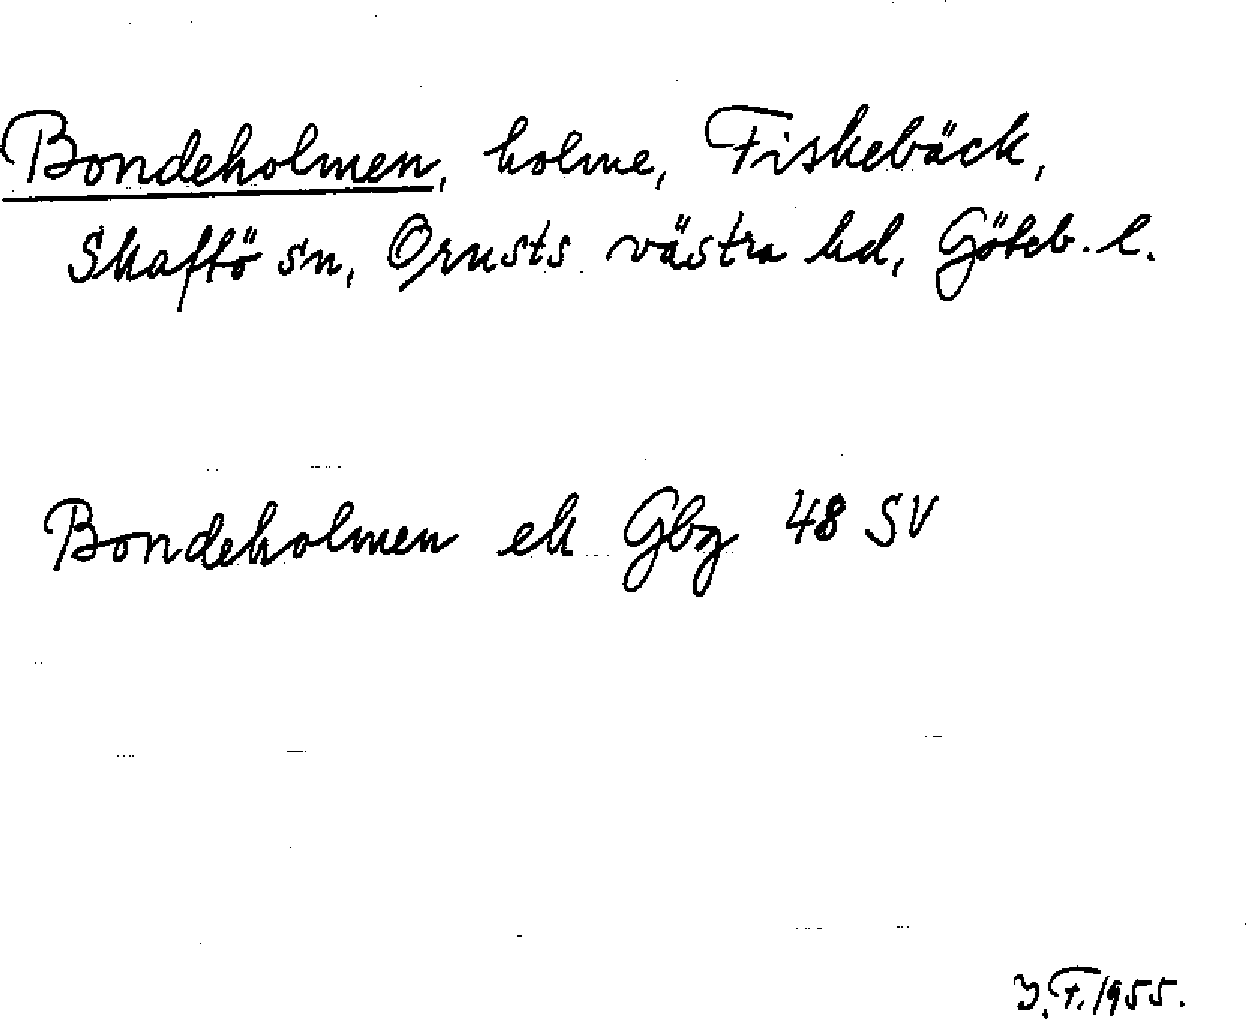 Bondeholmen, holme, Fiskebäck,
Skaftö sn, Orusts västra hd, Göteb. l.
Bondeholmen ek Gbg 48 SV
Y.F. 1955.